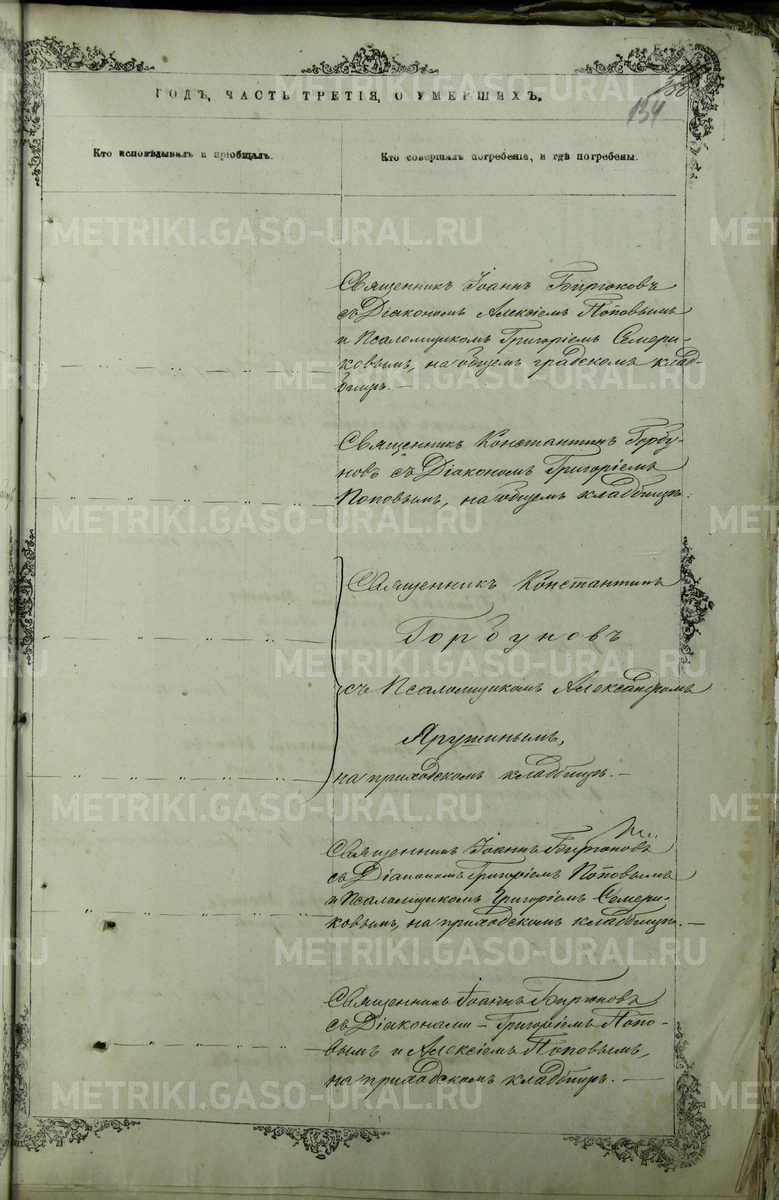 ГОДЪ, ЧАСТЬ ТРЕТІЯ, О УМЕРШИХЪ.
134
Кто исповѣдывалъ и пріобщалъ.
Кто совершалъ погребеніе, и гдѣ погребены.
Священникъ Іоаннъ Бирюковъ
съ Діакономъ Алексіемъ Поповымъ
и Псаломщикомъ Григоріемъ Семери-
ковымъ, на общемъ градскомъ клад-
бищѣ. —
Священникъ Константинъ Горбу-
новъ съ Діакономъ Григоріемъ
Поповымъ, на общемъ кладбищѣ.
Священникъ Константинъ
Горбуновъ
съ Псаломщикомъ Александромъ
Ярушинымъ,
на приходскомъ кладбищѣ. —
Священникъ Іоаннъ Бирюковъ
съ Діакономъ Григоріемъ Поповымъ
и Псаломщикомъ Григоріемъ Семери-
ковымъ, на приходскомъ кладбищѣ. —
Священникъ Іоаннъ Бирюковъ
съ Діаконами – Григоріемъ Попо-
вымъ и Алексіемъ Поповымъ,
на приходскомъ кладбищѣ. —
METRIKI.GASO-URAL.RU